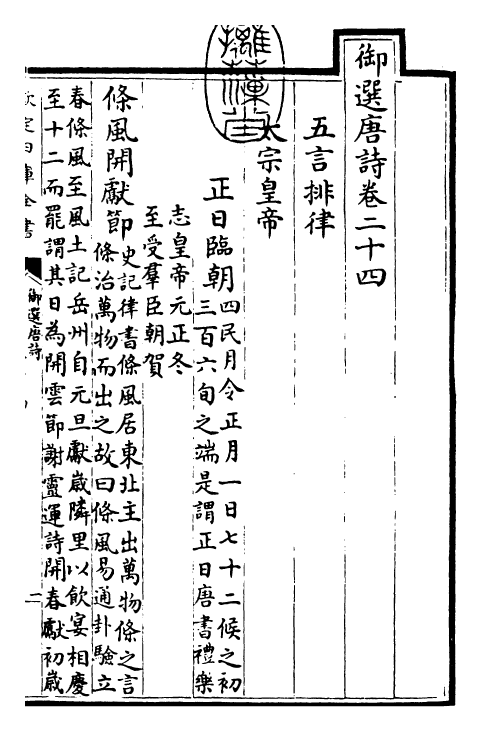 御選唐詩卷二十四
五言排律
太宗皇帝
正日臨朝四民月令正月一日七十二候之初
三百六旬之端是謂正日唐書禮樂
志皇帝元正冬
至受羣臣朝賀
條風開獻節史記律書條風居東北主出萬物條之言
條治萬物而出之故曰條風易通卦驗立
春條風至風土記岳州自元旦獻歲隣里以飲宴相慶
至十二而罷謂其日為開雲節謝靈運詩開春獻初歲
欽定四庫全書
御選唐詩